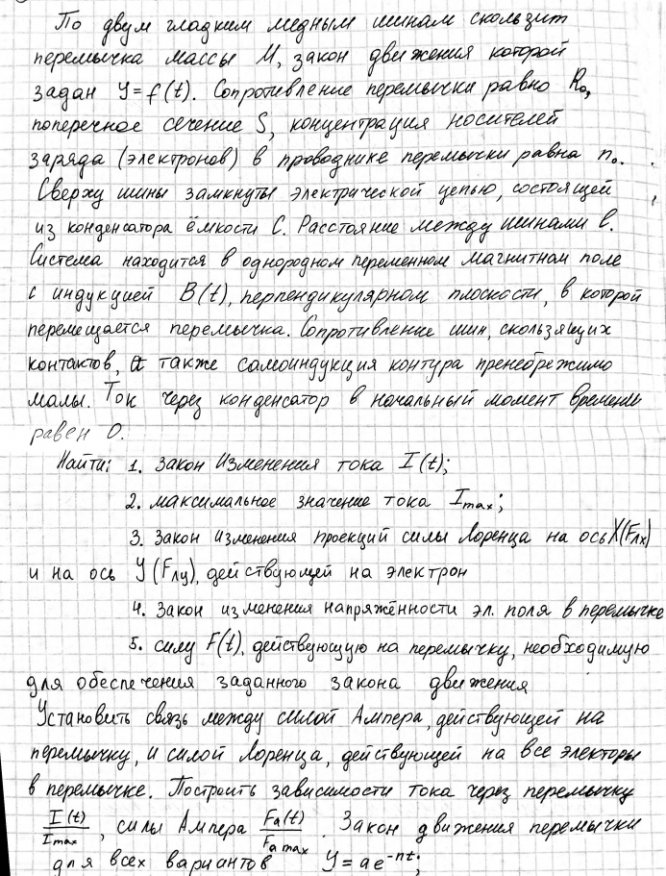 По двум гладким медным шинам скользит
перемычка массы М, закон движения которой
задан У=f(t). Сопротивление перемычки равно R₀,
поперечное сечение S, концентрация носителей
заряда (электронов) в проводнике перемычки равна n₀.
Сверху шины замкнуты электрической цепью, состоящей
из конденсатора ёмкости C. Расстояние между шинами l.
Система находится в однородном переменном магнитном поле
с индукцией B(t), перпендикулярном плоскости, в которой
перемещается перемычка. Сопротивление шин, скользящих
контактов, а также самоиндукция контура пренебрежимо
малы. Ток через конденсатор в начальный момент времени
равен 0.
Найти: 1. Закон изменения тока I(t);
2. максимальное значение тока Imax;
3. Закон изменения проекций силы Лоренца на ось X(Fлх)
и на ось У(Fлу), действующей на электрон
4. Закон изменения напряжённости эл. поля в перемычке
5. силу F(t), действующую на перемычку, необходимую
для обеспечения заданного закона движения
Установить связь между силой Ампера, действующей на
перемычку, и силой Лоренца, действующей на все электоры
в перемычке. Построить зависимости тока через перемычку
I(t)/Imax, силы Ампера Fa(t)/Fa max. Закон движения перемычки
для всех вариантов У=ae⁻ⁿᵗ;